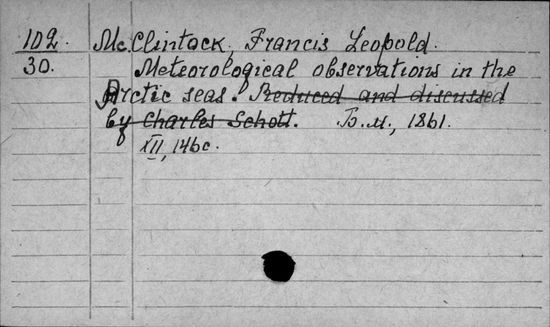 102. Mc.Clintock, Francis Leopold.
30. Meteorological observations in the
Arctic seas. Reduced and discussed
by Charles Schott. Б.м., 1861.
XII, 146 с.